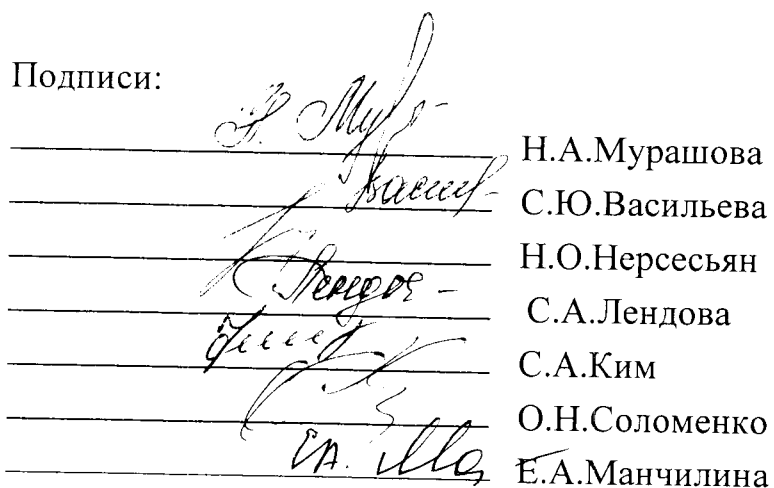 Подписи:
Н.А.Мурашова
С.Ю.Васильева
Н.О.Нерсесьян
С.А.Лендова
С.А.Ким
О.Н.Соломенко
Е.А.Манчилина